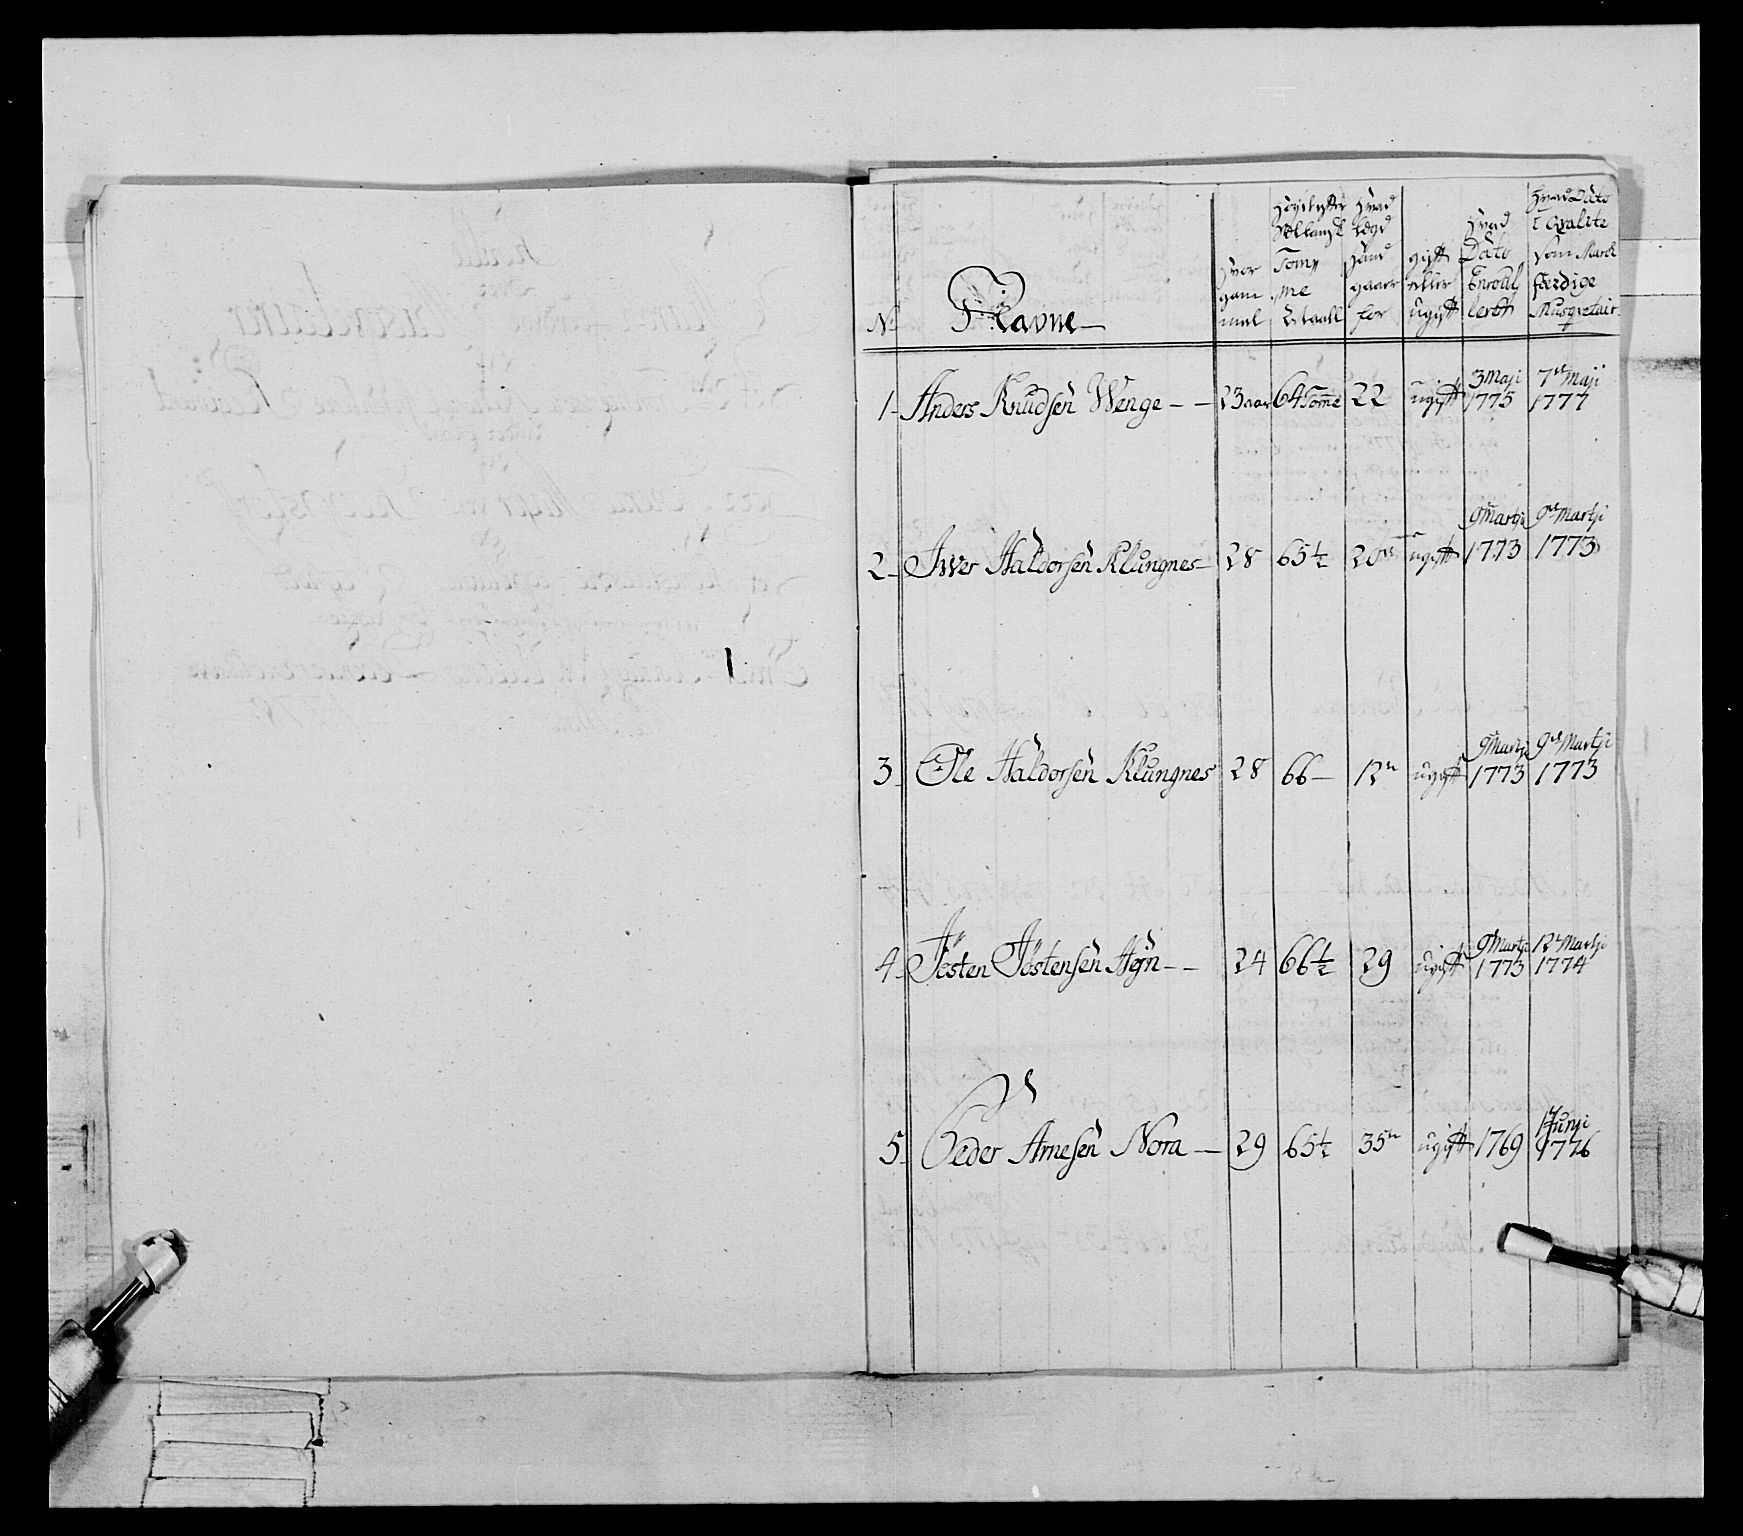 No
Navne
Hvor gam mel
Høy efter Tom me Maall
Hvad Lægd Hand gaaer for
gift eller ugift
Hvad Dato Enroul lert
Hvad Dato i Qvalite som March færdige Musqvetair
1 Anders Knudsen Wenge - - 23 aar 64 Tomme 22 ugift 3 Maji 1775 7de Maji 1777
2 Iwer Haldorsen Klungnes 28 65 1/2 20 ugift 9 Martji 1773 9de Martji 1773
3 Ole Haldorsen Klungnes 28 66 12 ugift 9 Martji 1773 9de Martji 1773
4 Jösten Jöstensen Hgn - - 24 66 1/2 29 ugift 9 Martji 1773 12 Martji 1774
5 Peder Arnesen Nora 29 65 1/2 35 ugift 1769 Junji 1776